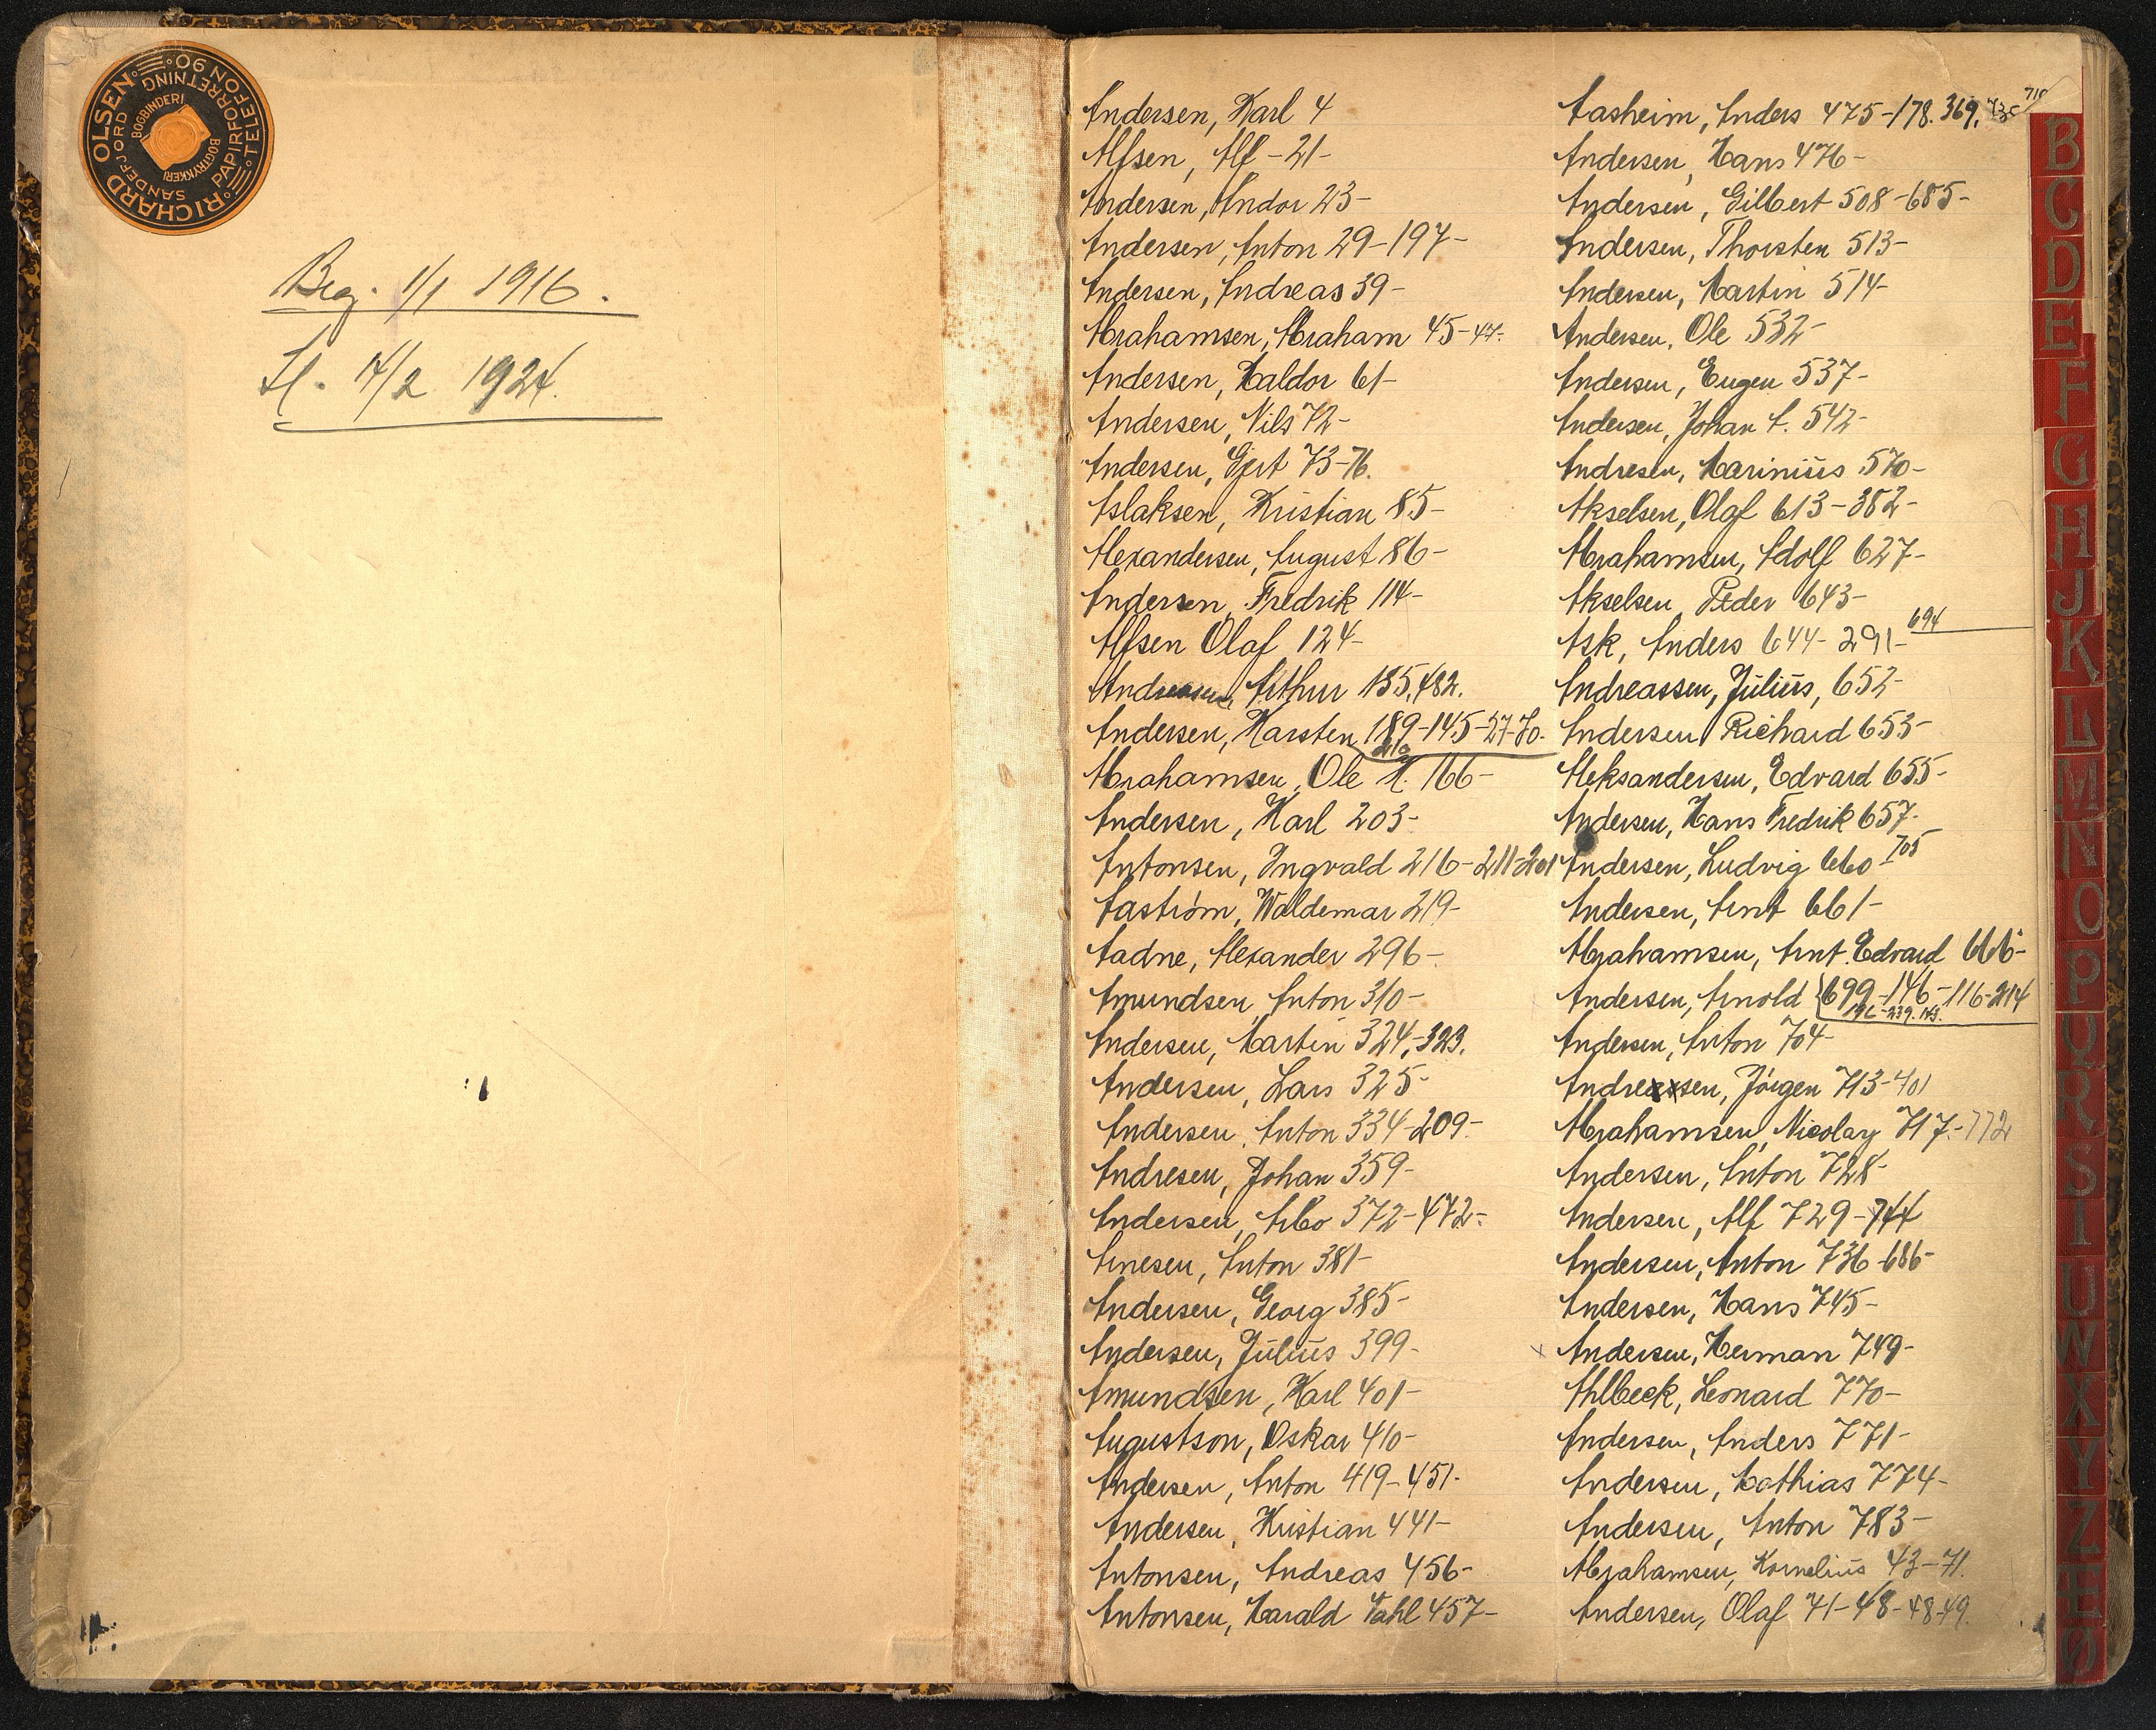 RICHARD OLSEN
TELEFON 90
SANDEFJORD
PAPIRFORRETNING
BOGBINDERI
BOGTRYKKERI
Beg. 1/1 1916.
Sl. 14/2 1924.
Andersen, Karl 4
Alfsen, Alf -21-
Andersen, Andor 23-
Andersen, Anton 29-197-
Andersen, Andreas 39-
Abrahamsen, Abraham 45-47-
Andersen, Haldor 61-
Andersen, Nils 72-
Andersen, Gert 73-76.
Aslaksen, Kristian 85-
Alexandersen, August 86-
Andersen, Fredrik 114-
Alfsen Olaf 124-
Arthur 135,482.
Andersen, Karsten 189-145-27-70-
Abrahamsen, Ole M. 166-
Andersen, Karl 203-
Antonsen, Ingvald 216-211-201
Aaström, Waldemar 219-
Aadne, Alexander 296-
Amundsen, Anton 310-
Andersen, Martin 324,-323.
Andersen, Lars 325-
Andersen, Anton 334-209-
Andresen, Johan 359-
Andersen, Arbo 372-472-
Arnesen, Anton 381-
Andersen, Georg 385-
Andersen, Julius 399-
Amundsen, Karl 401-
Augustson, Oskar 410-
Andersen, Anton 419-451-
Andersen, Kristian 441-
Antonsen, Andreas 456-
Antonsen, Harald Dahl 457-
Aasheim, Anders 475-178. 369.
Andersen, Hans 476-
Andersen, Gilbert 508-685-
Andersen, Thorsten 513-
Andersen, Martin 514-
Andersen, Ole 532-
Andersen, Eugen 537-
Andersen, Johan A. 542-
Andresen, Marinius 570-
Akselsen, Olaf 613-382-
Abrahamsen, Adolf 627-
Akselsen, Peder 643-
Ask, Anders 644-291-694
Andreassen, Julius, 652-
Andersen Richard 653-
Aleksandersen, Edvard 655-
Andersen, Hans Fredrik 657-
Andersen, Ludvig 660-705
Andersen, Arnt 661-
Abrahamsen, Arnt Edvard 666-
Andersen, Arnold 699-146-116-214
Andersen, Anton 704-
Jörgen 713-401
Abrahamsen, Nicolay 717-772
Andersen, Anton 728-
Andersen, Alf 729-744
Andersen, Anton 736-686-
Andersen, Hans 745-
x Andersen, Herman 749-
Ahlbeck, Leonard 770-
Andersen, Anders 771-
Andersen, Mathias 774-
Andersen, Anton 783-
Abrahamsen, Kornelius 43-71.
Andersen, Olaf 71-48-48-49.
B
C
D
E
F
G
H
J
K
L
M
N
O
P
Q
R
S
T
U
W
X
Y
Z
Æ
Ø